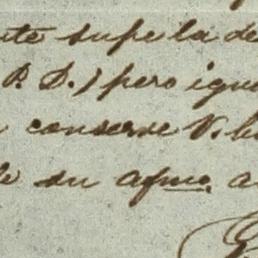 supe la de
P. D.) pero igu
conserve V.
su afmo. a